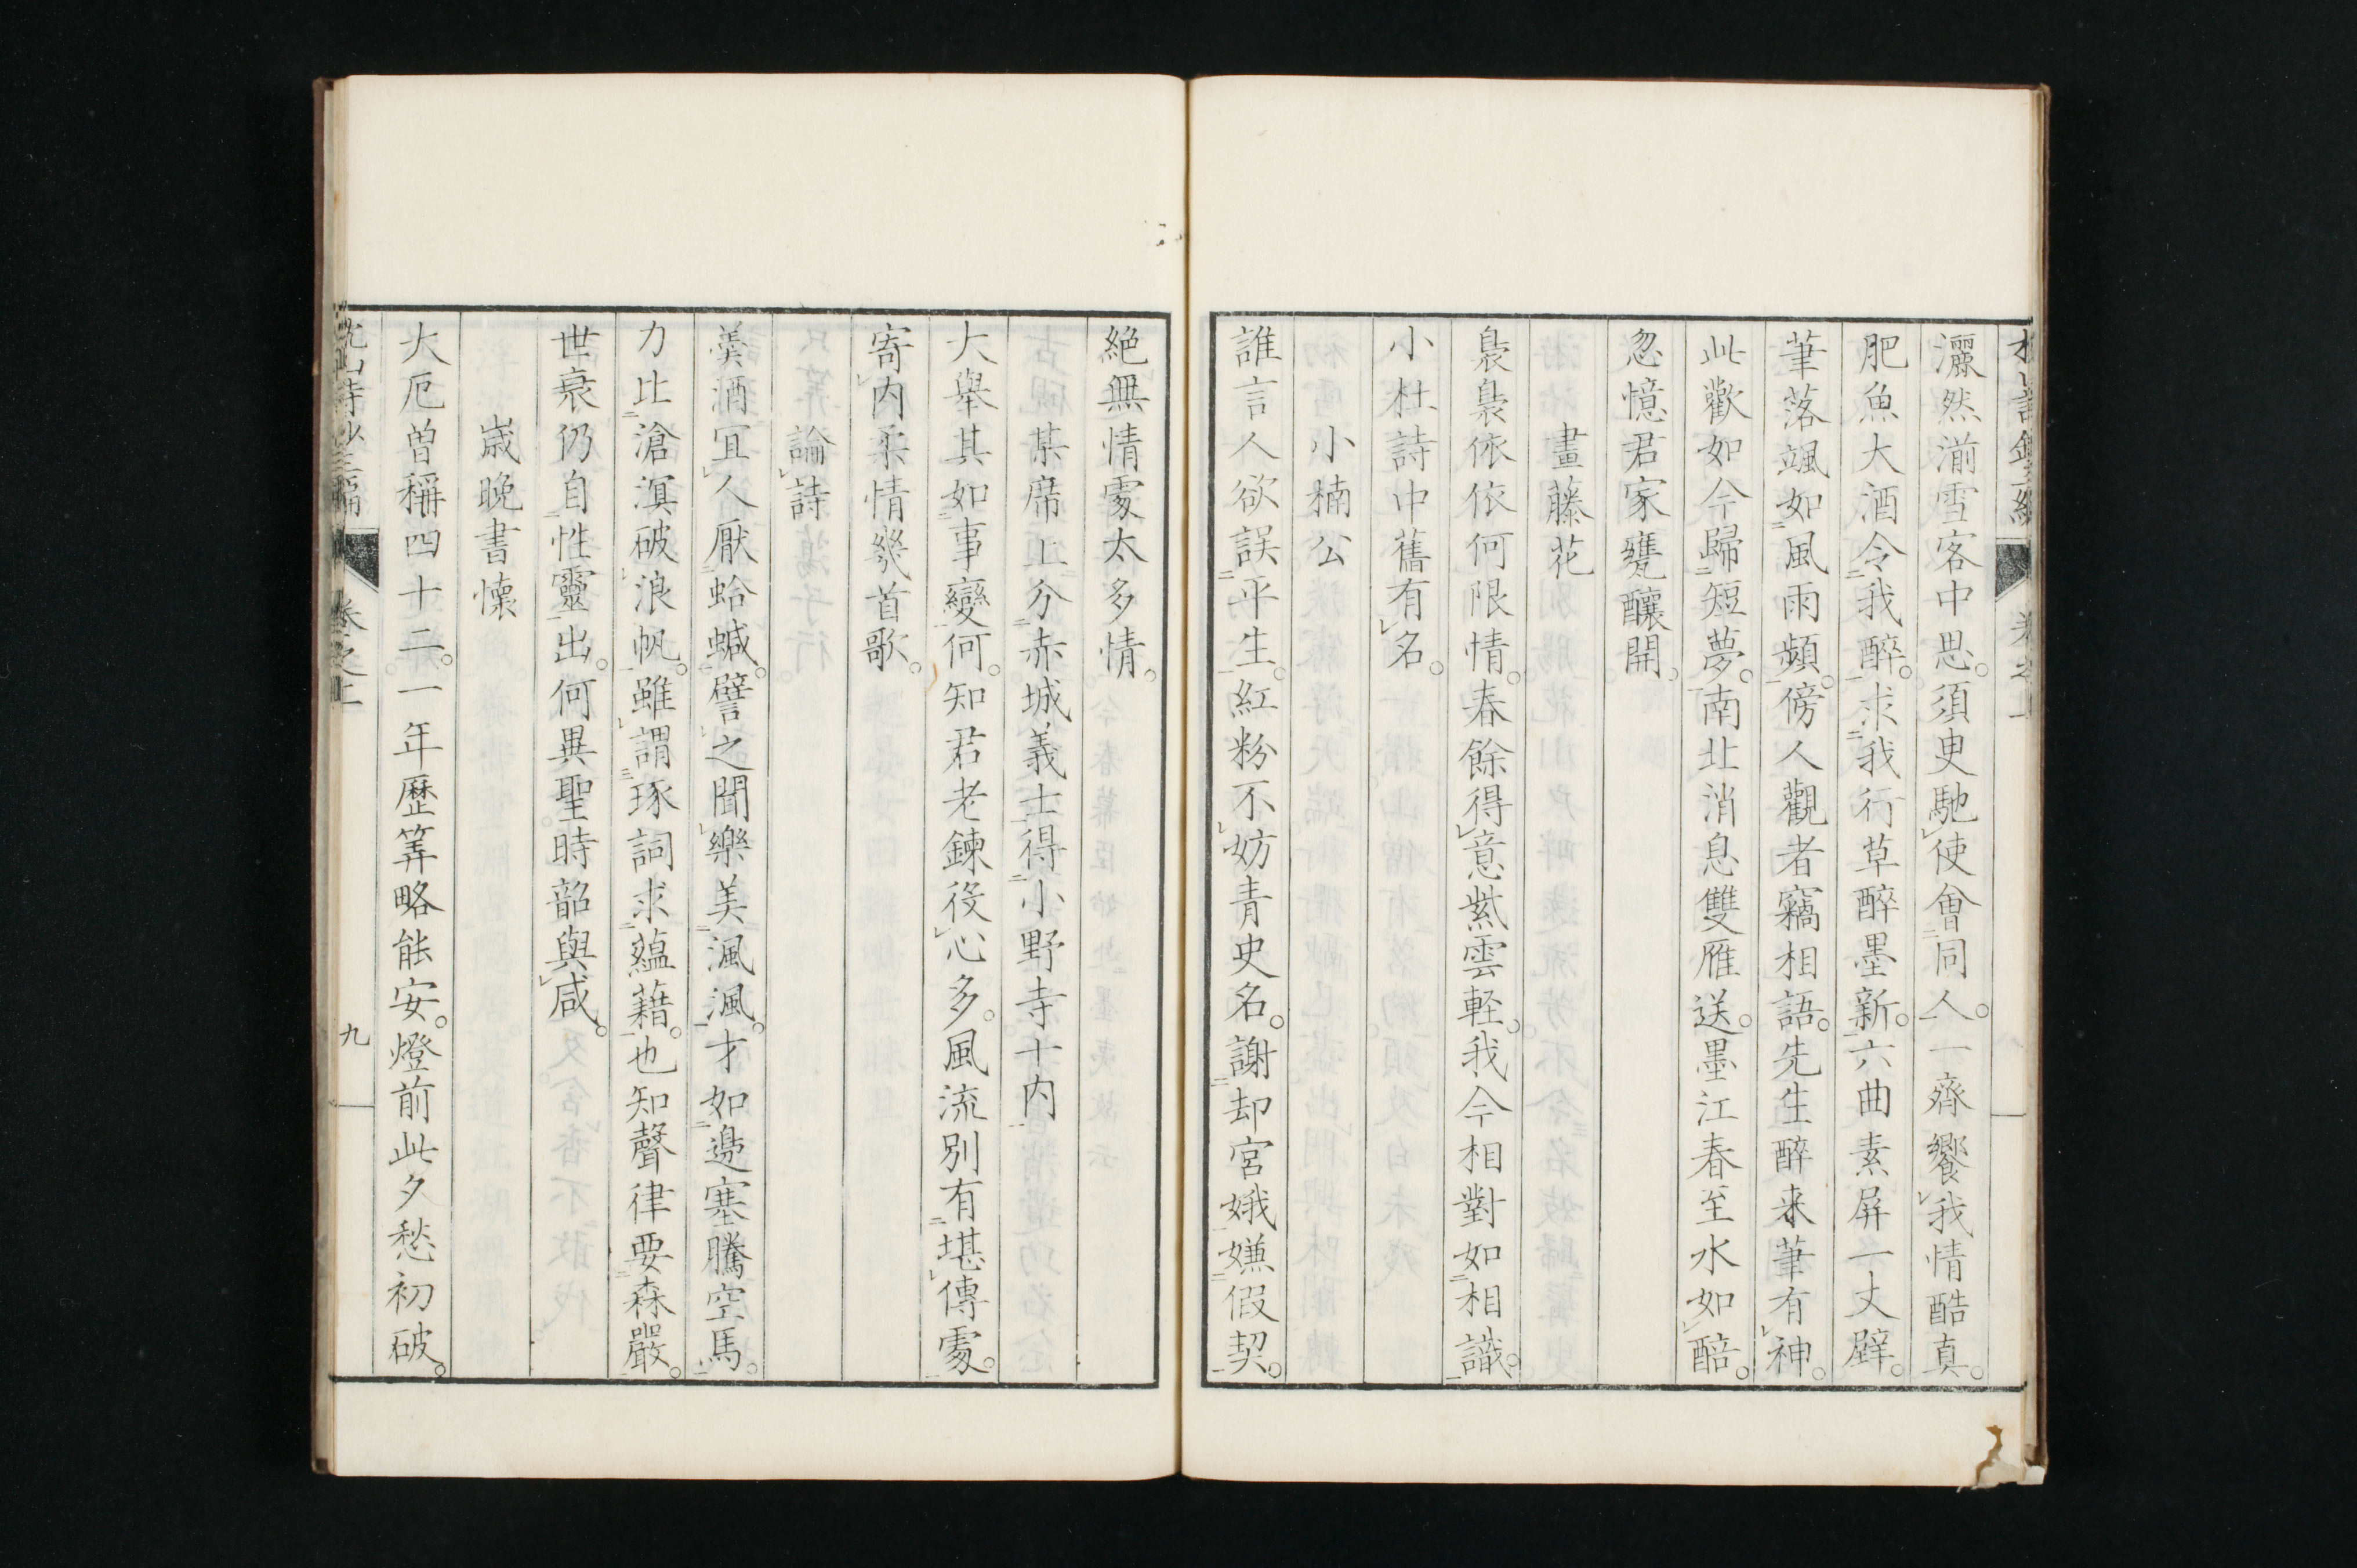 灑然湔雪客中思。須臾馳使會同人。一齊饗我情酷真。
肥魚大酒令我醉。求我行草醉墨新。六曲素屏一丈辟。
筆落颯如風雨頻。傍人觀者竊相語。先生醉来筆有神。
此歡如今歸短夢。南北消息雙雁送。墨江春至水如醅。
忽憶君家甕釀開。
畫藤花
裊裊依依何限情。春餘得意紫雲軽。我今相對如相識。
小杜詩中舊有名。
小楠公
誰言人欲誤平生。紅粉不妨青史名。謝却宮娥嫌假契。
絶無情處太多情。
某席上分赤城義士得小野寺十内
大舉其如事變何。知君老鍊役心多。風流別有堪傳處。
寄内柔情幾首歌。
論詩
羹酒宜人厭蛤蝛。譬之聞樂美渢渢。才如邊塞騰空馬。
力比滄溟破浪帆。雖謂琢詞求蘊藉。也知聲律要森嚴。
世衰仍自性靈出。何異聖時韶與咸。
嵗晚書懷
大厄曽稱四十二。一年歴筭略能安。燈前此夕愁初破。
卷之上
九